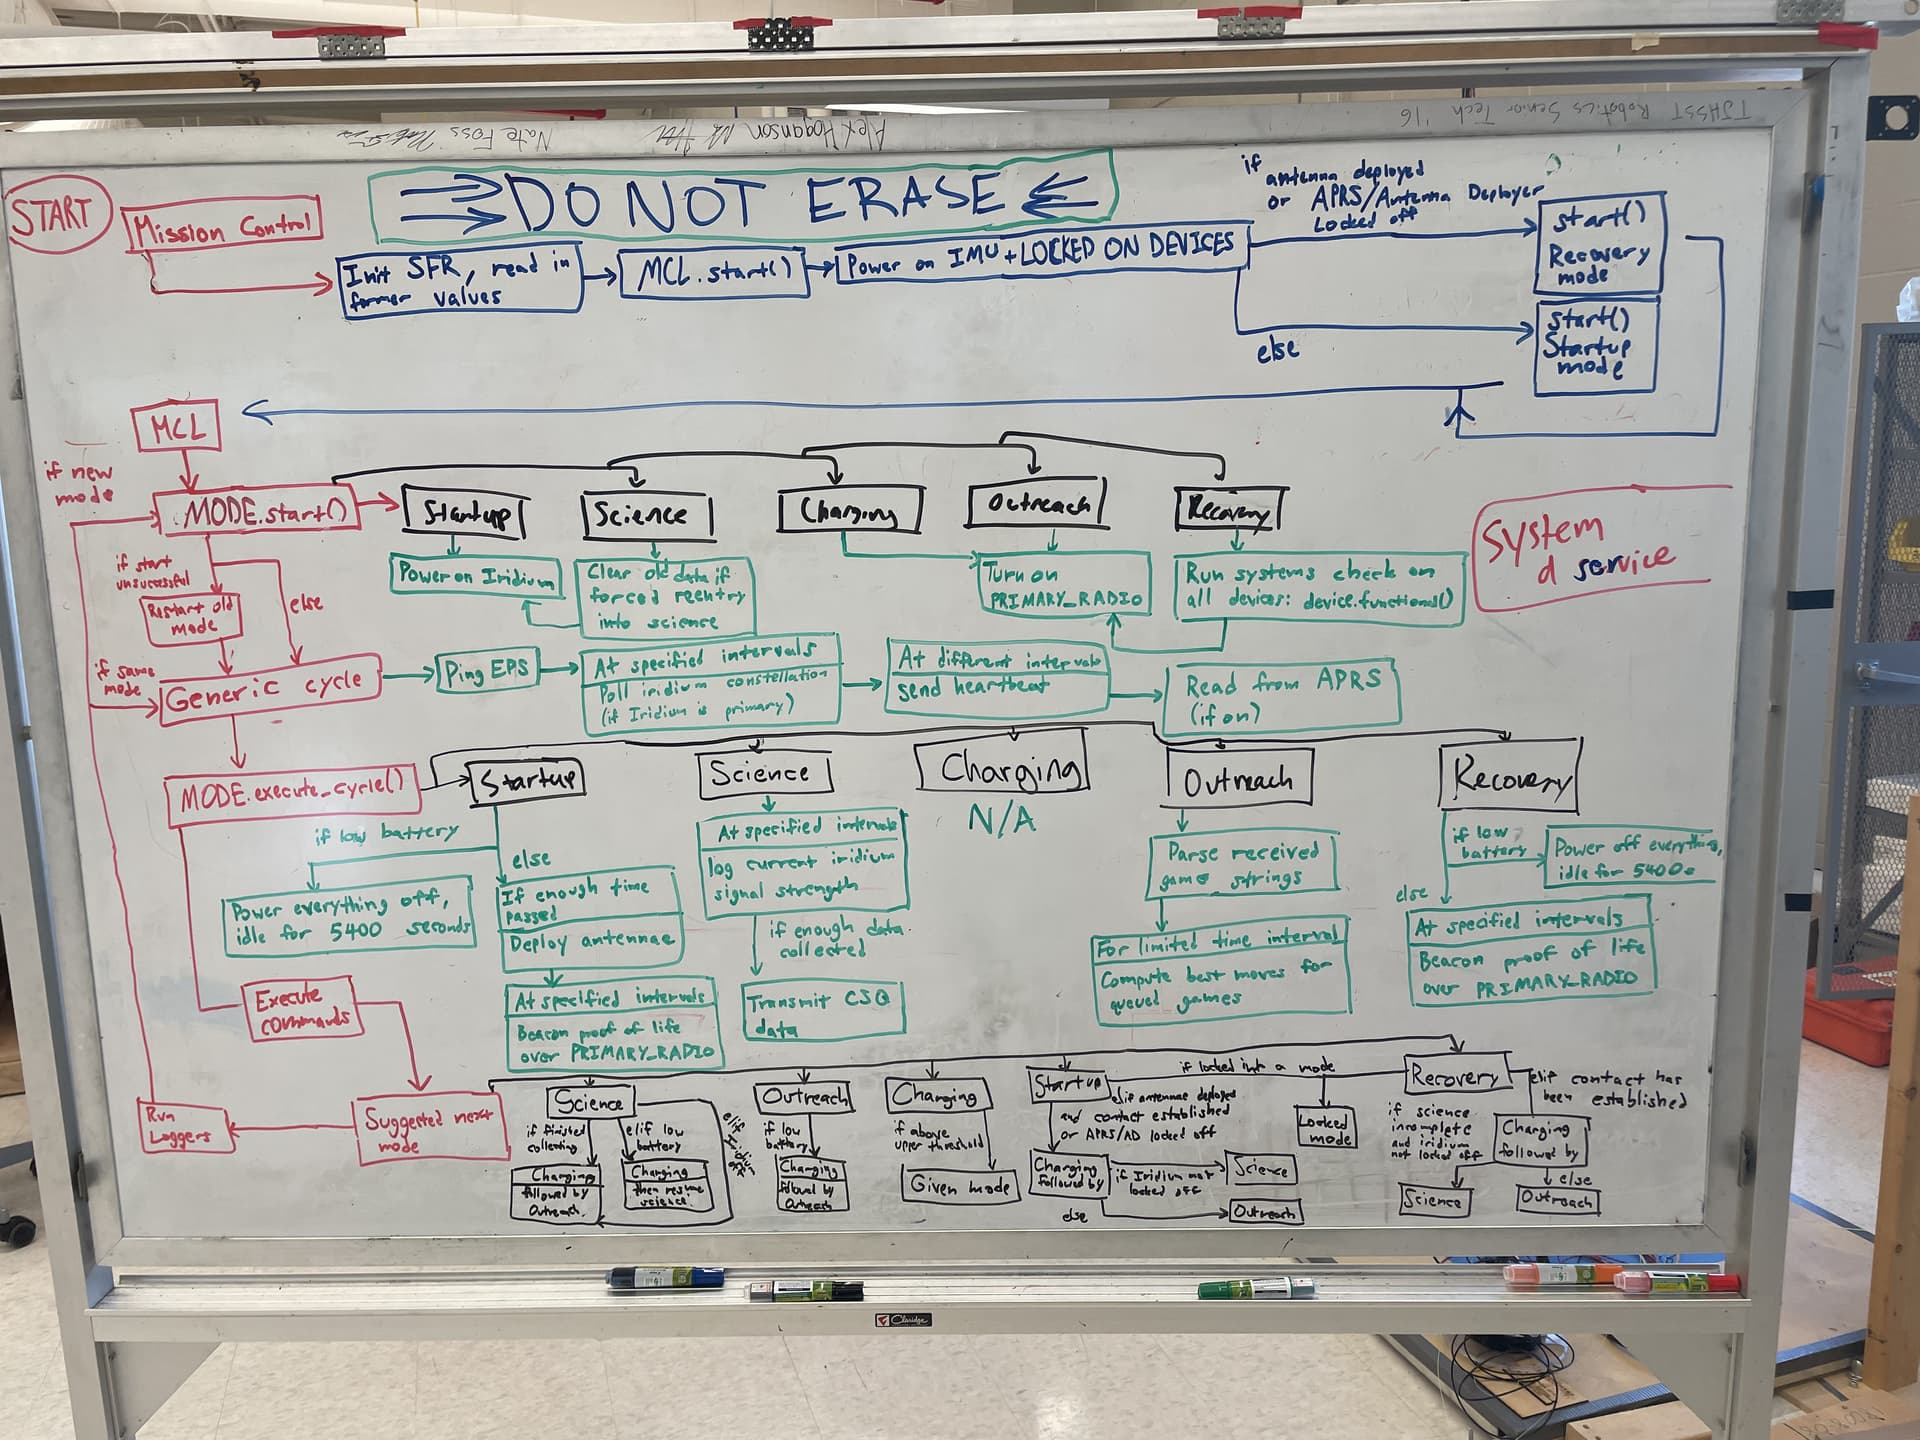 TJHSST Robotics Senior Tech '16
Alex Hogganson
Nate Foss
START
Mission Control
DO NOT ERASE
Init SFR, read in
former values
MCL.start()
Power on IMU + LOCKED ON DEVICES
if
antenna deployed
or APRS/Antenna Deployer
Locked off
start()
Recovery
mode
else
start()
Startup
mode
MCL
if new
mode
MODE.start()
Startup
Science
Charging
Outreach
Recovery
System
d service
if start
unsuccessful
Restart old
mode
else
Power on Iridium
Clear old data if
forced reentry
into science
Turn on
PRIMARY_RADIO
Run systems check on
all devices: device.functional()
if same
mode
Generic cycle
Ping EPS
At specified intervals
Poll iridium constellation
(if Iridium is primary)
At different intervals
send heartbeat
Read from APRS
(if on)
MODE.execute_cycle()
Startup
Science
Charging
N/A
Outreach
Recovery
if low battery
Power everything off,
idle for 5400 seconds
else
If enough time
passed
Deploy antennae
At specified intervals
Beacon proof of life
over PRIMARY_RADIO
At specified intervals
log current iridium
signal strength
if enough data
collected
Transmit CSQ
data
Parse received
game strings
For limited time interval
Compute best moves for
queued games
if low
battery
Power off everything,
idle for 5400s
else
At specified intervals
Beacon proof of life
over PRIMARY_RADIO
Execute
commands
Run
Loggers
Suggested next
mode
Science
if finished
collecting
Charging
followed by
Outreach
elif low
battery
Charging
then resume
science
elif iridium
off
Outreach
if low
battery
Charging
followed by
Outreach
Charging
if above
upper threshold
Given mode
Startup
if locked into a mode
Locked
mode
elsif antennae deployed
and contact established
or APRS/AD locked off
Charging
followed by
if Iridium not
locked off
Science
else
Outreach
Recovery
elif contact has
been established
Charging
followed by
if science
incomplete
and iridium
not locked off
Science
else
Outreach
Claridge